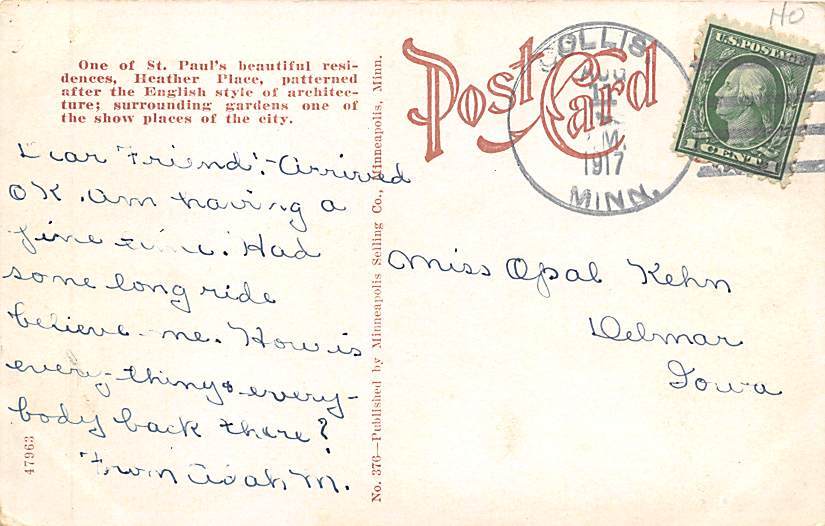 One of St. Paul's beautiful resi-
dences, Heather Place, patterned
after the English style of architec-
ture; surrounding gardens one of
the show places of the city.
Dear Friend:- Arrived
OK. Am having a
fine time. Had
some long ride
believe me. How is
every-thing & every-
body back there?
From Adah M.
47963
No. 376—Published by Minneapolis Selling Co., Minneapolis, Minn.
Post Card
COLLIS
AUG
M.
1917
MINN.
HO
U.S. POSTAGE
1 CENT 1
Miss Opal Kehn
Delmar
Iowa